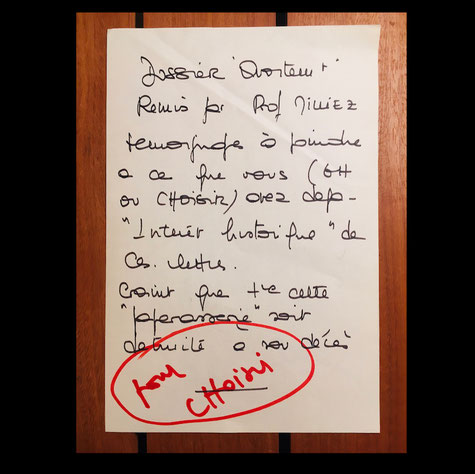 Dossier "Avortemt"
Remis par Prof MILLIEZ
témoignages à joindre
a ce que vous (GH
ou CHOISIR) avez déjà -
"Intérêt historique" de
ces lettres.
Craint que tte cette
"paperasserie" soit
détruite a son décès
pour
CHOISIR